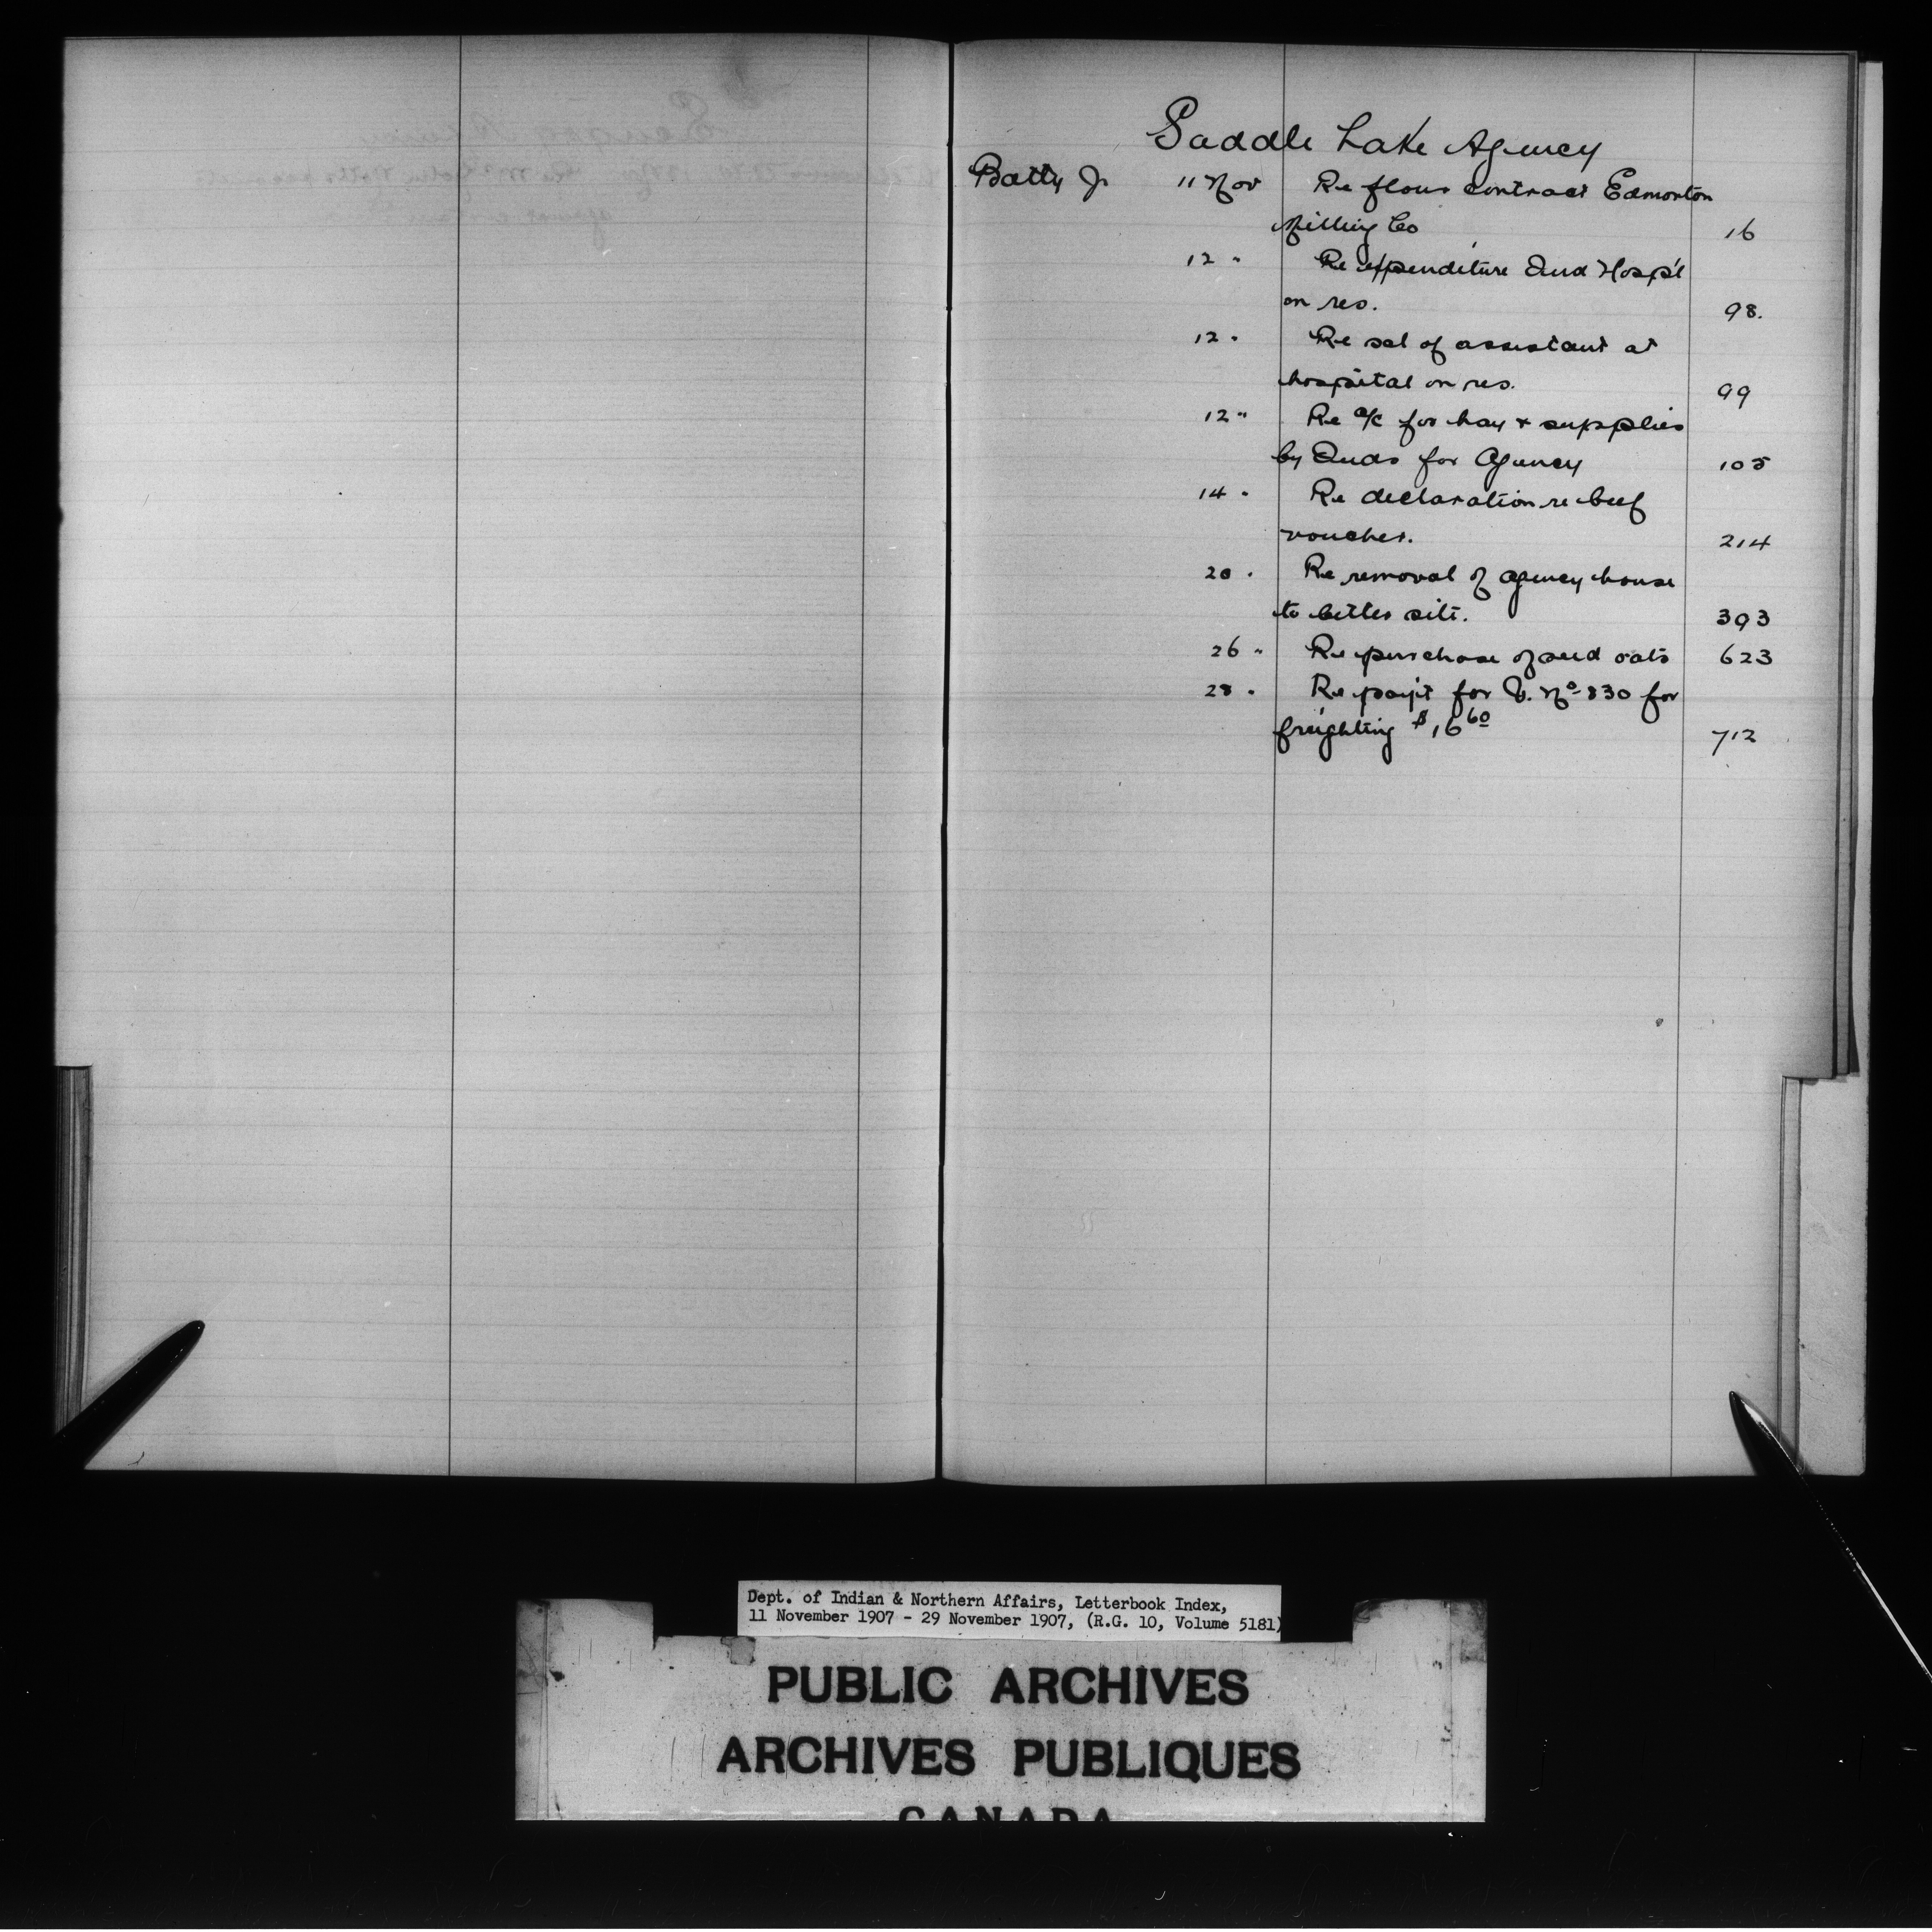 Saddle Lake Agency
Batty J. 11 Nov Re flour contract Edmonton
Milling Co 16
12 " Re expenditure Ind Hosp'l
on res. 98.
12 " Re sal of assistant at
hospital on res. 99
12 " Re a/c for hay + supplies
by Inds for Agency 105
14 " Re declaration re beef
voucher. 214
20 " Re removal of agency house
to better site. 393
26 " Re purchase of seed oats 623
28 " Re paym't for V. No 830 for
freighting $16 60 712
Dept. of Indian & Northern Affairs, Letterbook Index,
11 November 1907 - 29 November 1907, (R.G. 10, Volume 5181)
PUBLIC ARCHIVES
ARCHIVES PUBLIQUES
CANADA